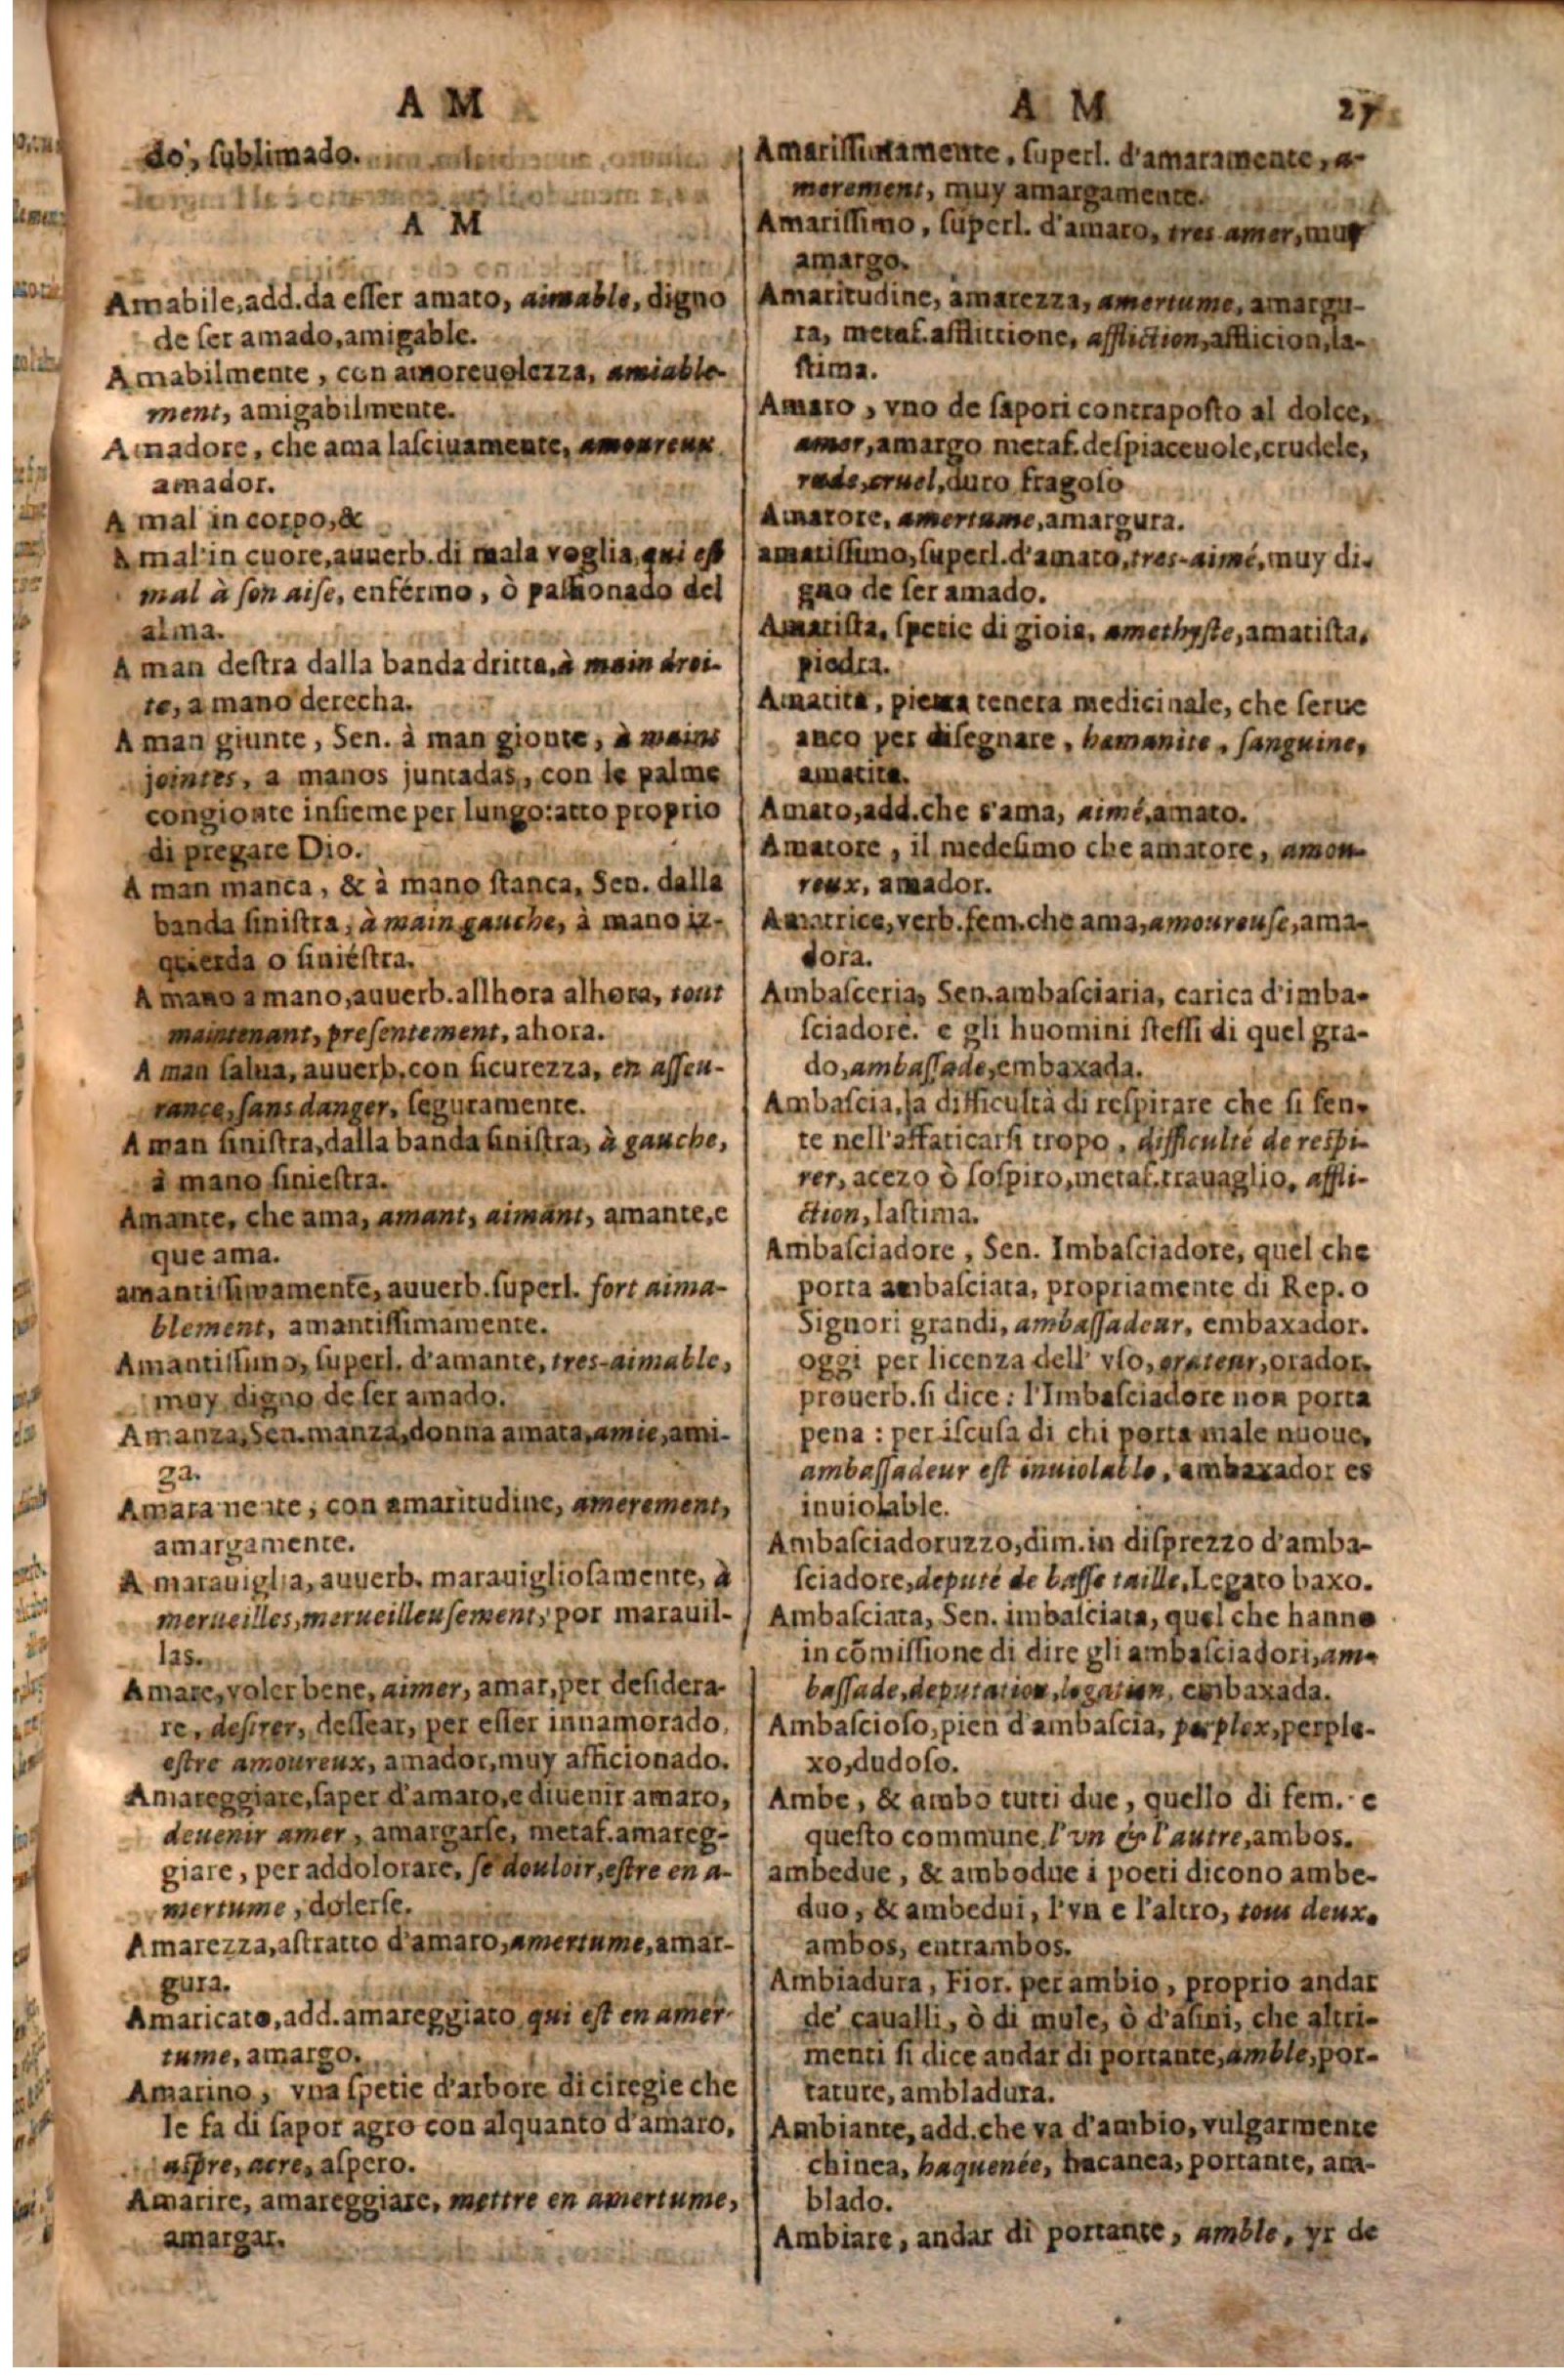 A M
do, ſublimado.
A M
Amabile, add. da eſſer amato, aimable, digno
de ſer amado, amigable.
Amabilmente, con amoreuolezza, amiable-
ment, amigabilmente.
Amadore, che ama laſciuamente, amoureux
amador.
A mal in corpo, &
A mal in cuore, auuerb. di mala voglia, qui eſt
mal à ſon aiſe, enfermo, ò paſſionado del
alma.
A man deſtra dalla banda dritta, à main droi-
te, a mano derecha.
A man giunte, Sen. à man gionte, à mains
jointes, a manos juntadas, con le palme
congionte inſieme per lungo: atto proprio
di pregare Dio.
A man manca, & à mano ſtanca, Sen. dalla
banda ſiniſtra, à main gauche, à mano iz-
quierda o ſinieſtra.
A mano a mano, auuerb. allhora alhora, tout
maintenant, preſentement, ahora.
A man ſalua, auuerb. con ſicurezza, en aſſeu-
rance, ſans danger, ſeguramente.
A man ſiniſtra, dalla banda ſiniſtra, à gauche,
à mano ſinieſtra.
Amante, che ama, amant, aimant, amante, e
que ama.
amantiſſimamente, auuerb. ſuperl. fort aima-
blement, amantiſſimamente.
Amantiſſimo, ſuperl. d'amante, tres-aimable,
muy digno de ſer amado.
Amanza, Sen. manza, donna amata, amie, ami-
ga.
Amaramente, con amaritudine, amerement,
amargamente.
A marauiglia, auuerb. marauiglioſamente, à
merueilles, merueilleuſement, por marauil-
las.
Amare, voler bene, aimer, amar, per deſidera-
re, deſirer, deſſear, per eſſer innamorado,
eſtre amoureux, amador, muy afficionado.
Amareggiare, ſaper d'amaro, e diuenir amaro,
deuenir amer, amargarſe, metaf. amareg-
giare, per addolorare, ſe douloir, eſtre en a-
mertume, dolerſe.
Amarezza, aſtratto d'amaro, amertume, amar-
gura.
Amaricato, add. amareggiato qui eſt en amer-
tume, amargo.
Amarino, vna ſpetie d'arbore di ciregie che
le fa di ſapor agro con alquanto d'amaro,
aſpre, acre, aſpero.
Amarire, amareggiare, mettre en amertume,
amargar.
A M 27
Amariſſimamente, ſuperl. d'amaramente, a-
merement, muy amargamente.
Amariſſimo, ſuperl. d'amaro, tres amer, muy
amargo.
Amaritudine, amarezza, amertume, amargu-
ra, metaf. afflittione, affliction, afflicion, la-
ſtima.
Amaro, vno de ſapori contrapoſto al dolce,
amer, amargo metaf. deſpiaceuole, crudele,
rude, cruel, duro fragoſo
Amarore, amertume, amargura.
amatiſſimo, ſuperl. d'amato, tres-aimé, muy di-
gno de ſer amado.
Amatiſta, ſpetie di gioia, amethyſte, amatiſta,
piedra.
Amatita, pietra tenera medicinale, che ſerue
anco per diſegnare, hamanite, ſanguine,
amatita.
Amato, add. che s'ama, aimé, amato.
Amatore, il medeſimo che amatore, amou-
reux, amador.
Amatrice, verb. fem. che ama, amoureuſe, ama-
dora.
Ambaſceria, Sen. ambaſciaria, carica d'imba-
ſciadore. e gli huomini ſteſſi di quel gra-
do, ambaſſade, embaxada.
Ambaſcia, la difficultà di reſpirare che ſi ſen-
te nell'affaticarſi tropo, difficulté de reſpi-
rer, acezo ò ſoſpiro, metaf. trauaglio, affli-
ction, laſtima.
Ambaſciadore, Sen. Imbaſciadore, quel che
porta ambaſciata, propriamente di Rep. o
Signori grandi, ambaſſadeur, embaxador.
oggi per licenza dell' vſo, orateur, orador.
prouerb. ſi dice: l'Imbaſciadore non porta
pena: per iſcuſa di chi porta male nuoue,
ambaſſadeur eſt inuiolable, ambaxador es
inuiolable.
Ambaſciadoruzzo, dim. in diſprezzo d'amba-
ſciadore, deputé de baſſe taille, Legato baxo.
Ambaſciata, Sen. imbaſciata, quel che hanno
in cõmiſſione di dire gli ambaſciadori, am-
baſſade, deputation, legation, embaxada.
Ambaſcioſo, pien d'ambaſcia, perplex, perple-
xo, dudoſo.
Ambe, & ambo tutti due, quello di fem. e
queſto commune, l'vn & l'autre, ambos.
ambedue, & ambodue i poeti dicono ambe-
duo, & ambedui, l'vn e l'altro, tous deux,
ambos, entrambos.
Ambiadura, Fior. per ambio, proprio andar
de' caualli, ò di mule, ò d'aſini, che altri-
menti ſi dice andar di portante, amble, por-
tature, ambladura.
Ambiante, add. che va d'ambio, vulgarmente
chinea, haquenée, hacanea, portante, am-
blado.
Ambiare, andar di portante, amble, yr de